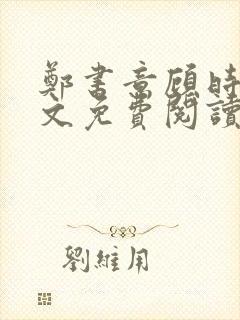 鄭書意顧時
文免費閱讀
劉維用